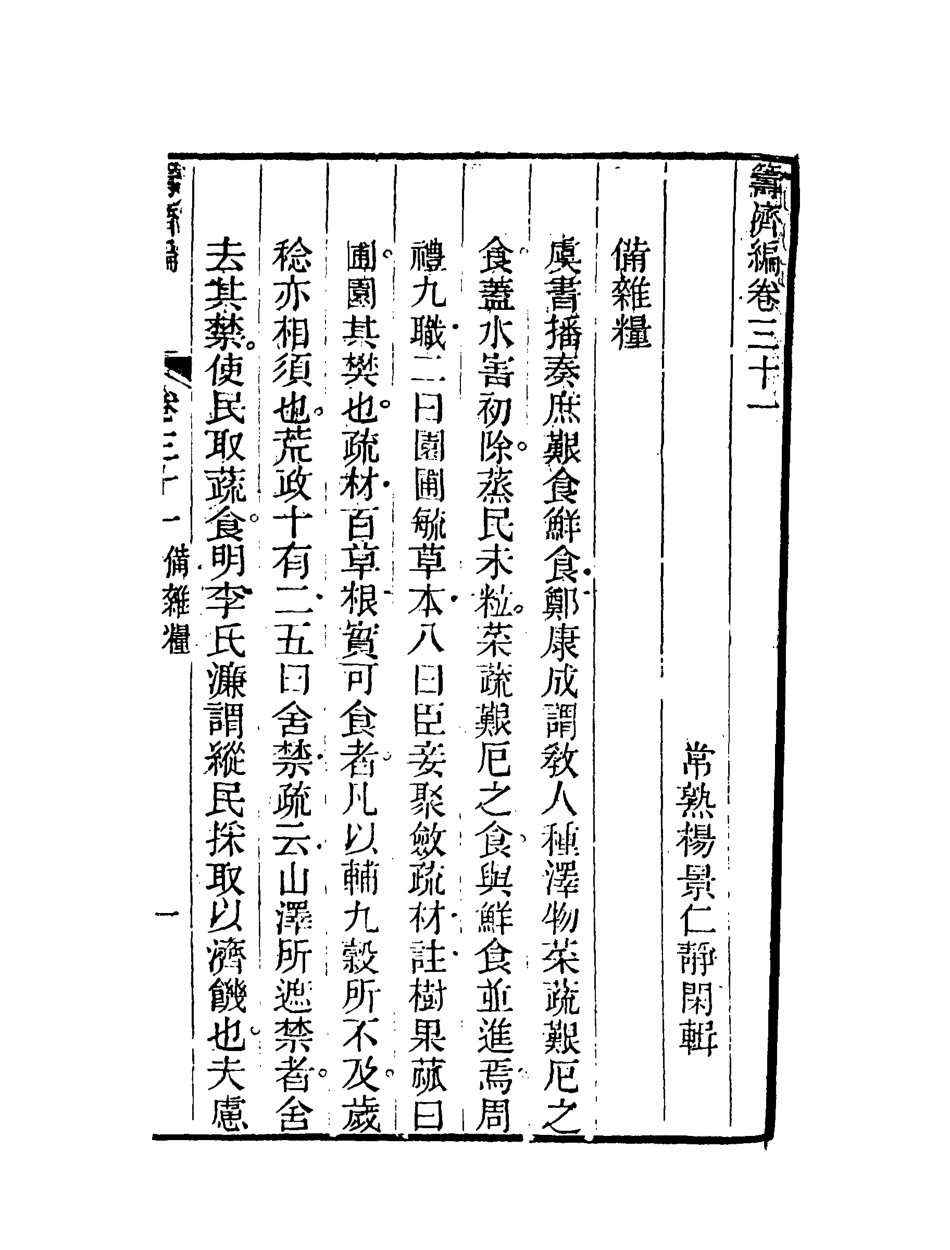 籌濟編卷三十一
常熟楊景仁靜閑輯
備雜糧
虞書播奏庶艱食鮮食鄭康成謂敎人種澤物菜蔬艱厄之
食。蓋水害初除。蒸民未粒。菜蔬艱厄之食。與鮮食並進焉。周
禮九職二曰園圃毓草木八曰臣妾聚斂疏材註樹果蓏曰
圃。園其樊也。疏材百草根實可食者。凡以輔九穀所不及。歲
稔亦相須也。荒政十有二五曰舍禁疏云山澤所遮禁者。舍
去其禁。使民取蔬食。明李氏濂謂縱民採取以濟饑也。夫慮
籌濟編 卷三十一 備雜糧 一